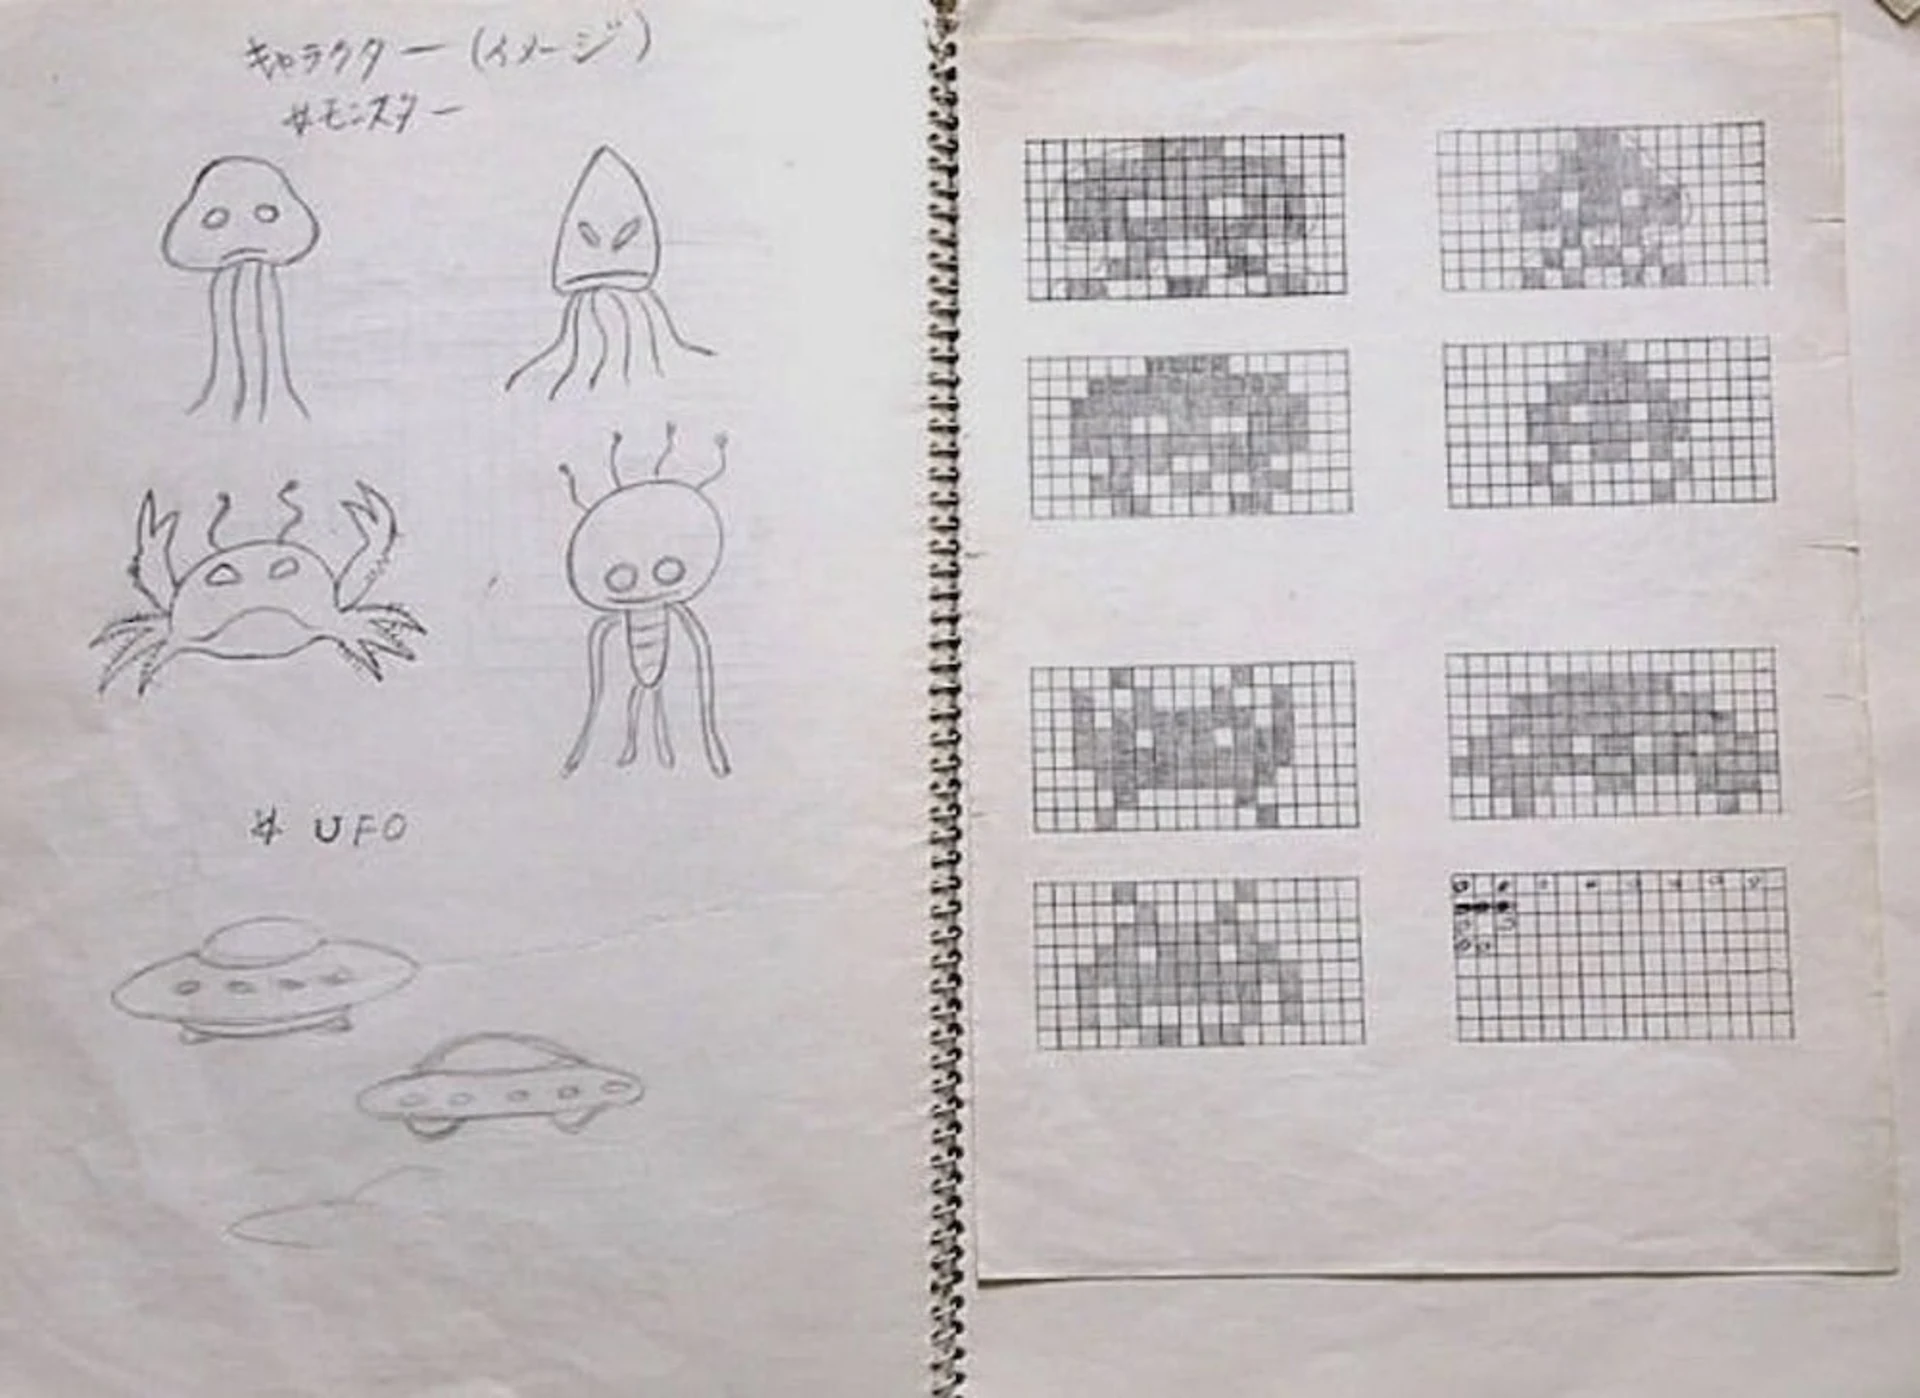 キャラクター(イメージ)
#モンスター
# UFO